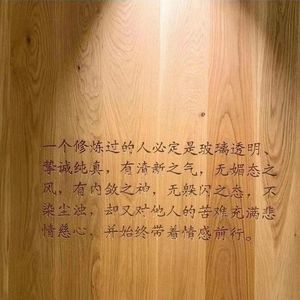 一个修炼过的人必定是玻璃透明、
挚诚纯真，有清新之气，无媚态之
风，有内敛之神，无躲闪之态，不
染尘浊，却又对他人的苦难充满悲
情慈心，并始终带着情感前行。